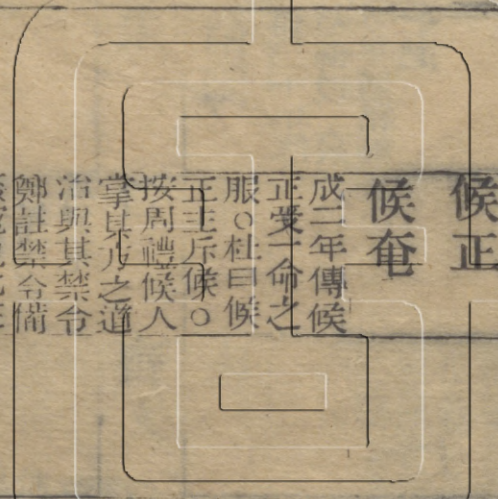 候正
候奄
成二年傳候
正受一命之
服○杜曰候
正主斥候○
按周禮候人
掌其方之道
治與其禁令
鄭註禁令備